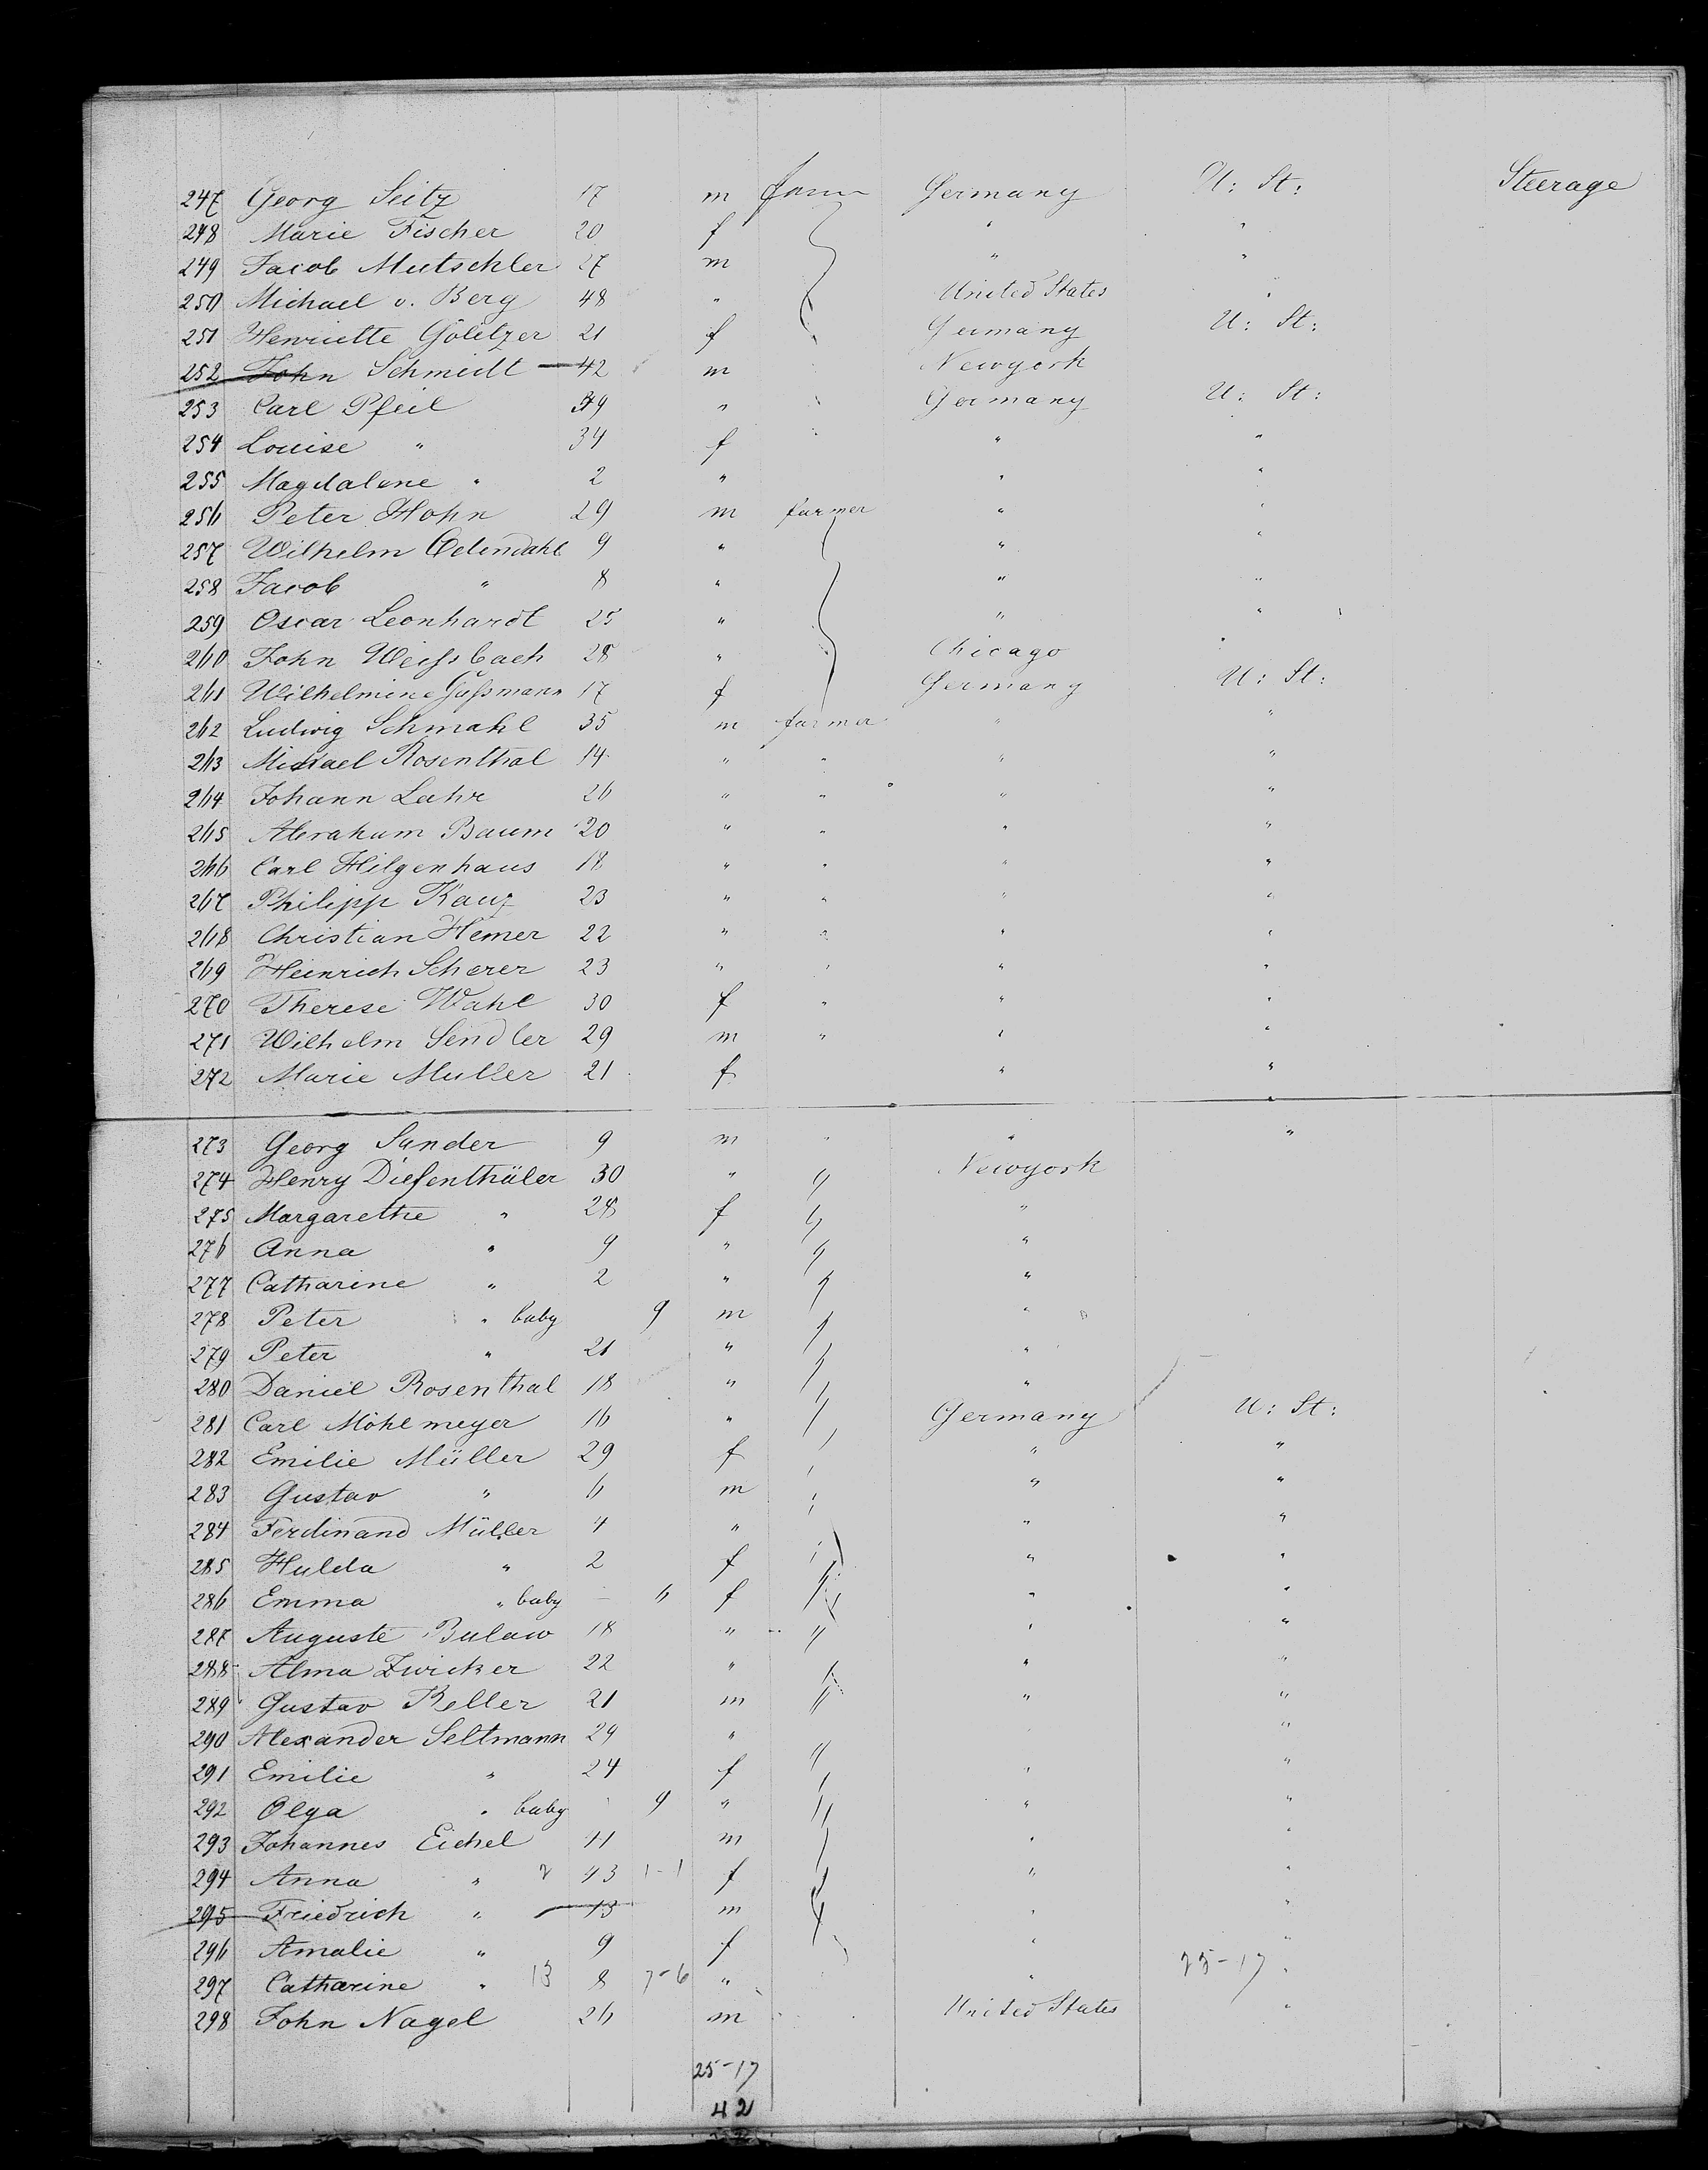 247 Georg Seitz 17 m farm Germany U: St: Steerage
248 Marie Fischer 20 f " "
249 Jacob Mutschler 27 m " "
250 Michael v. Berg 48 " United States "
251 Henriette Golitzer 21 f Germany U: St:
252 John Schmidt 42 m Newyork
253 Carl Pfeil 39 " Germany U: St:
254 Louise " 34 f " "
255 Magdalene " 2 " " "
256 Peter Hohn 29 m farmer " "
257 Wilhelm Odendahl 9 " " "
258 Jacob " 8 " " "
259 Oscar Leonhardt 25 " " "
260 John Weißbach 28 " Chicago "
261 Wilhelmine Gußmann 17 f Germany U: St:
262 Ludwig Schmahl 35 m farmer " "
263 Michael Rosenthal 14 " " " "
264 Johann Lahr 26 " " " "
265 Abraham Baum 20 " " " "
266 Carl Hilgenhaus 18 " " " "
267 Philipp Kauz 23 " " " "
268 Christian Hemer 22 " " " "
269 Heinrich Scherer 23 " " " "
270 Therese Wahl 30 f " " "
271 Wilhelm Sendler 29 m " " "
272 Marie Muller 21 f " "
273 Georg Sander 9 m " " "
274 Henry Diefenthäler 30 " " Newyork
275 Margarethe " 28 f " "
276 Anna " 9 " " "
277 Catharine " 2 " " "
278 Peter " baby 9 m " "
279 Peter " 21 " " "
280 Daniel Rosenthal 18 " " "
281 Carl Möhlmeyer 16 " " Germany U: St:
282 Emilie Müller 29 f " "
283 Gustav " 6 m " "
284 Ferdinand Müller 4 " " "
285 Hulda " 2 f " "
286 Emma " baby – 6 f " "
287 Auguste Bulaw 18 " " " "
288 Alma Zwicker 22 " " "
289 Gustav Keller 21 m " " "
290 Alexander Seltmann 29 " "
291 Emilie " 24 f " " "
292 Olga " baby 9 " " " "
293 Johannes Eichel 41 m " "
294 Anna " 43 1-1 f " "
295 Friedrich " 13 m " "
296 Amalie " 9 f " "
297 Catharine " 13 8 7-6 " " 25-17 "
298 John Nagel 26 m United States "
25-17
42